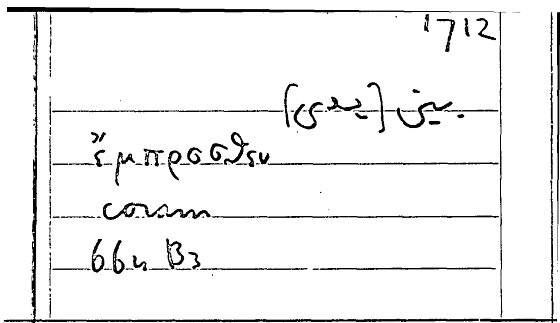 1712
بين [يدى]
ἔμπροσθεν
coram
664 B3